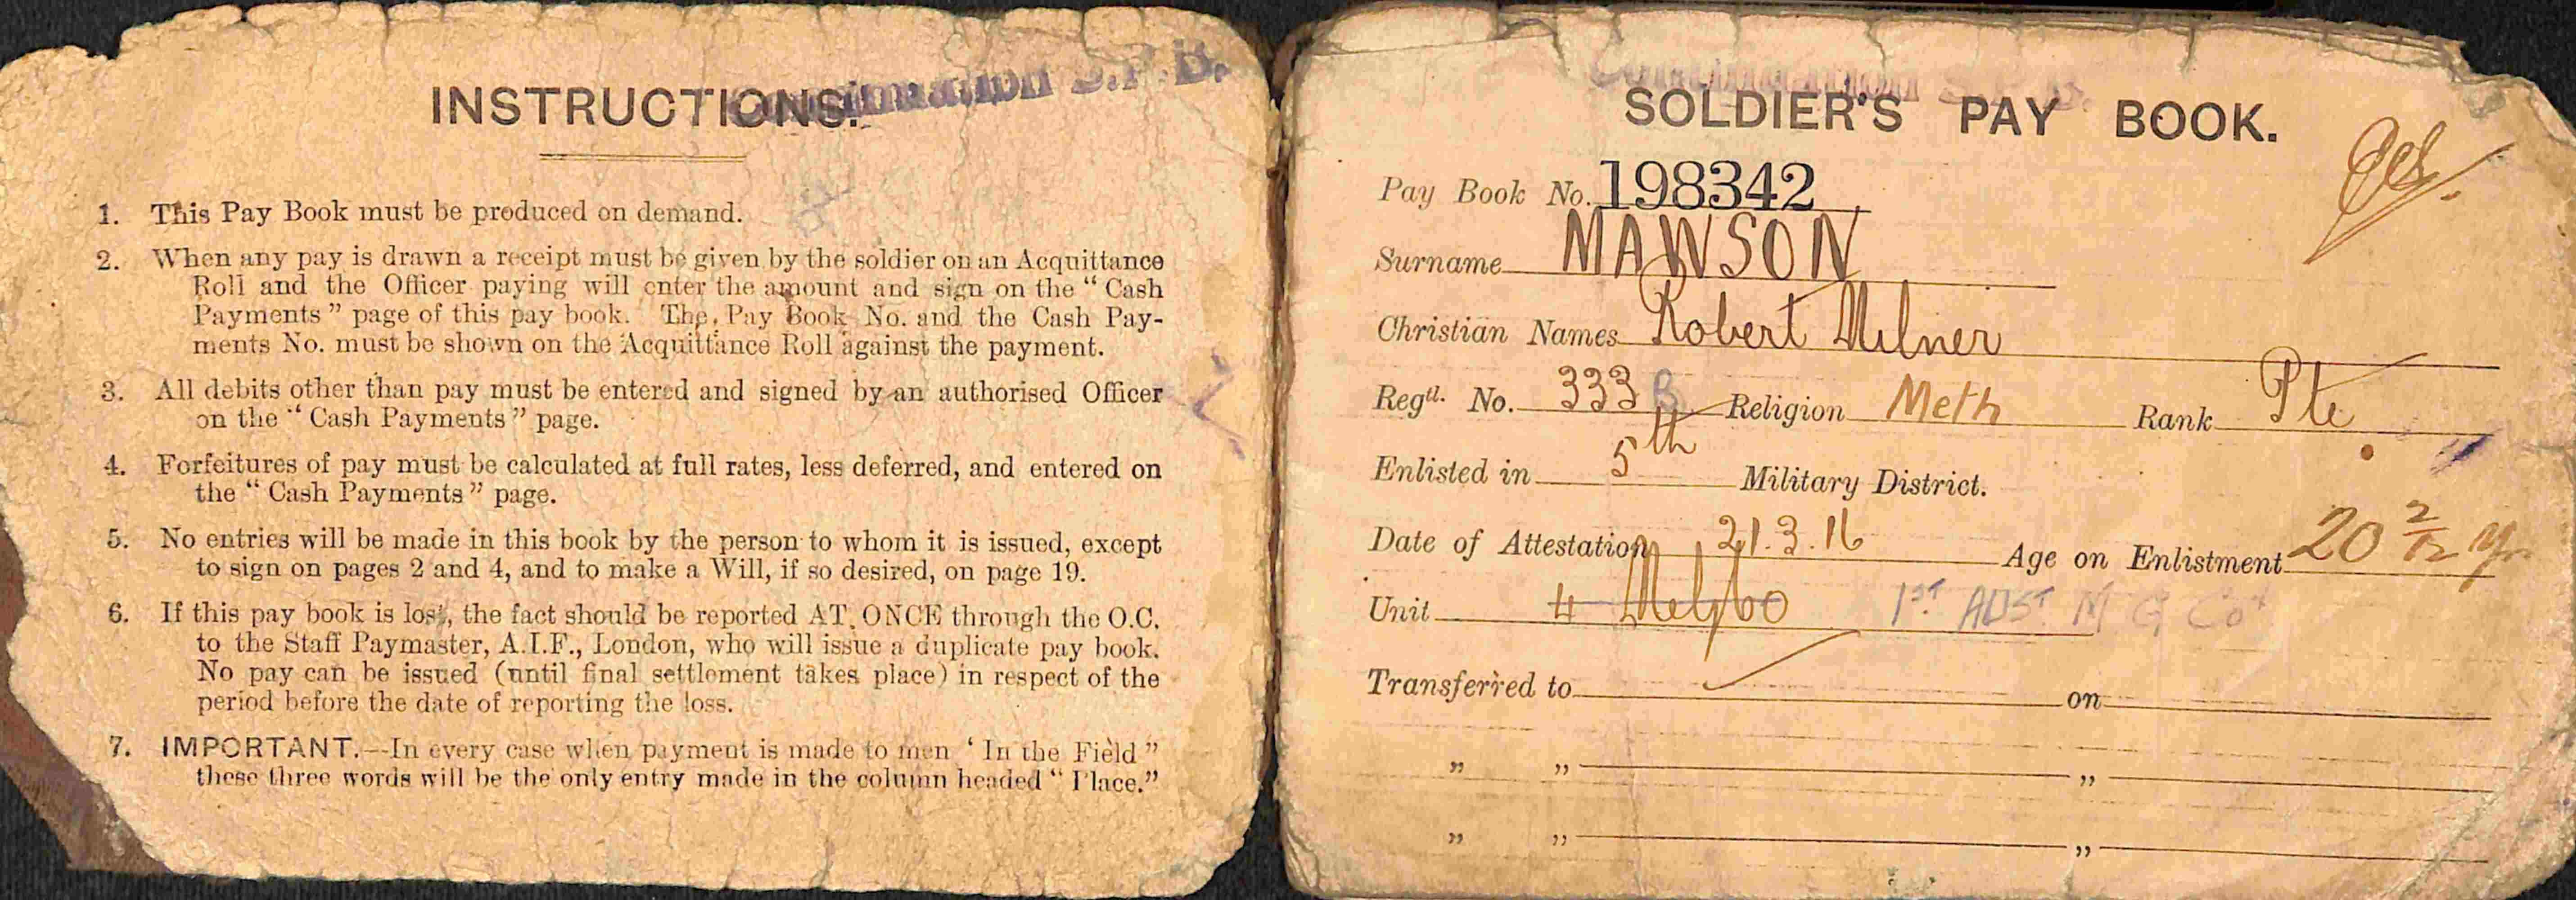 Continuation S.P.B.
INSTRUCTIONS.
1. This Pay Book must be produced on demand.
2. When any pay is drawn a receipt must be given by the soldier on an Acquittance
Roll and the Officer paying will enter the amount and sign on the “ Cash
Payments ” page of this pay book. The Pay Book No. and the Cash Pay-
ments No. must be shown on the Acquittance Roll against the payment.
3. All debits other than pay must be entered and signed by an authorised Officer
on the “ Cash Payments ” page.
4. Forfeitures of pay must be calculated at full rates, less deferred, and entered on
the “ Cash Payments ” page.
5. No entries will be made in this book by the person to whom it is issued, except
to sign on pages 2 and 4, and to make a Will, if so desired, on page 19.
6. If this pay book is lost, the fact should be reported AT ONCE through the O.C.
to the Staff Paymaster, A.I.F., London, who will issue a duplicate pay book.
No pay can be issued (until final settlement takes place) in respect of the
period before the date of reporting the loss.
7. IMPORTANT.—In every case when payment is made to men ‘ In the Field ”
these three words will be the only entry made in the column headed “ Place.”
Continuation S.P.B.
SOLDIER'S PAY BOOK.
Pay Book No. 198342
Surname MAWSON
Christian Names Robert Milner
Regtl. No. 333 B Religion Meth Rank Pte
Enlisted in 5th Military District.
Date of Attestation 21.3.16 Age on Enlistment 20 2/12 yrs
Unit 1ST AUST M G Coy
Transferred to on
” ” ”
” ” ”